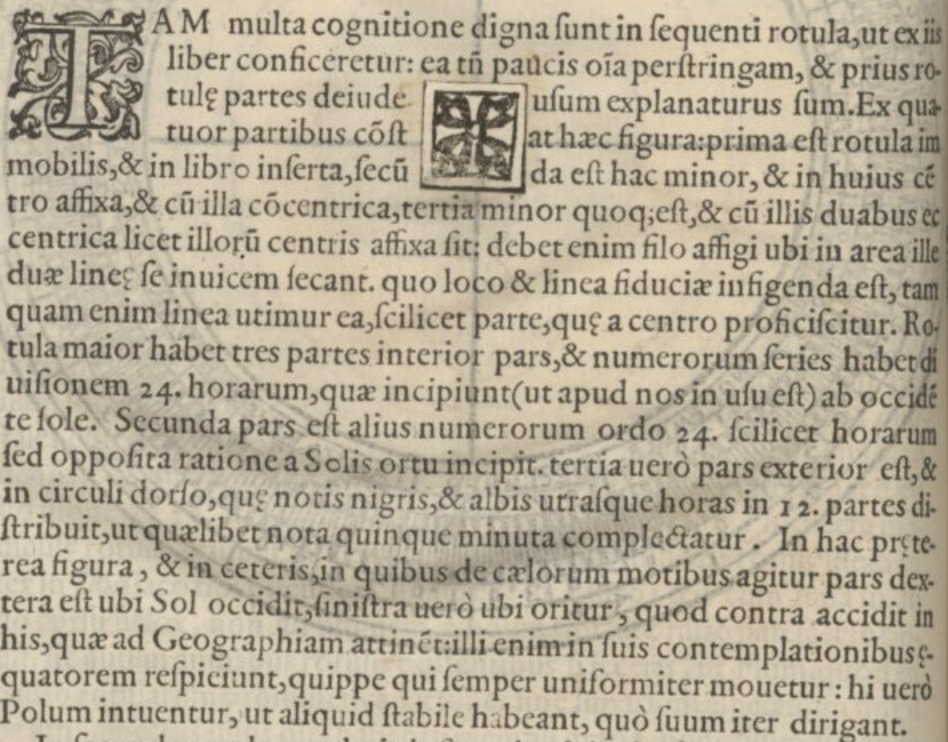 TAM multa cognitione digna ſunt in ſequenti rotula,ut ex iis
liber conficeretur: ea tñ paucis oĩa perſtringam, & prius ro-
tulę partes deiude uſum explanaturus ſum.Ex qua-
tuor partibus cõſt at hæc figura:prima eſt rotula im
mobilis,& in libro inſerta,ſecũ da eſt hac minor, & in huius cẽ
tro affixa,& cũ illa cõcentrica,tertia minor quoq;eſt,& cũ illis duabus ec
centrica licet illorũ centris affixa ſit: debet enim filo affigi ubi in area ille
duæ lineę ſe inuicem ſecant. quo loco & linea fiduciæ infigenda eſt, tam
quam enim linea utimur ea,ſcilicet parte,quę a centro proficiſcitur. Ro-
tula maior habet tres partes interior pars,& numerorum ſeries habet di
uiſionem 24. horarum,quæ incipiunt(ut apud nos in uſu eſt) ab occidẽ
te ſole. Secunda pars eſt alius numerorum ordo 24. ſcilicet horarum
ſed oppoſita ratione a Solis ortu incipit. tertia uerò pars exterior eſt,&
in circuli dorſo,quę notis nigris,& albis utraſque horas in 12. partes di-
ſtribuit,ut quælibet nota quinque minuta complectatur. In hac pręte-
rea figura, & in ceteris,in quibus de cælorum motibus agitur pars dex-
tera eſt ubi Sol occidit,ſiniſtra uerò ubi oritur, quod contra accidit in
his,quæ ad Geographiam attinẽt:illi enim in ſuis contemplationibus ę-
quatorem reſpiciunt,quippe qui ſemper uniformiter mouetur: hi uerò
Polum intuentur, ut aliquid ſtabile habeant, quò ſuum iter dirigant.